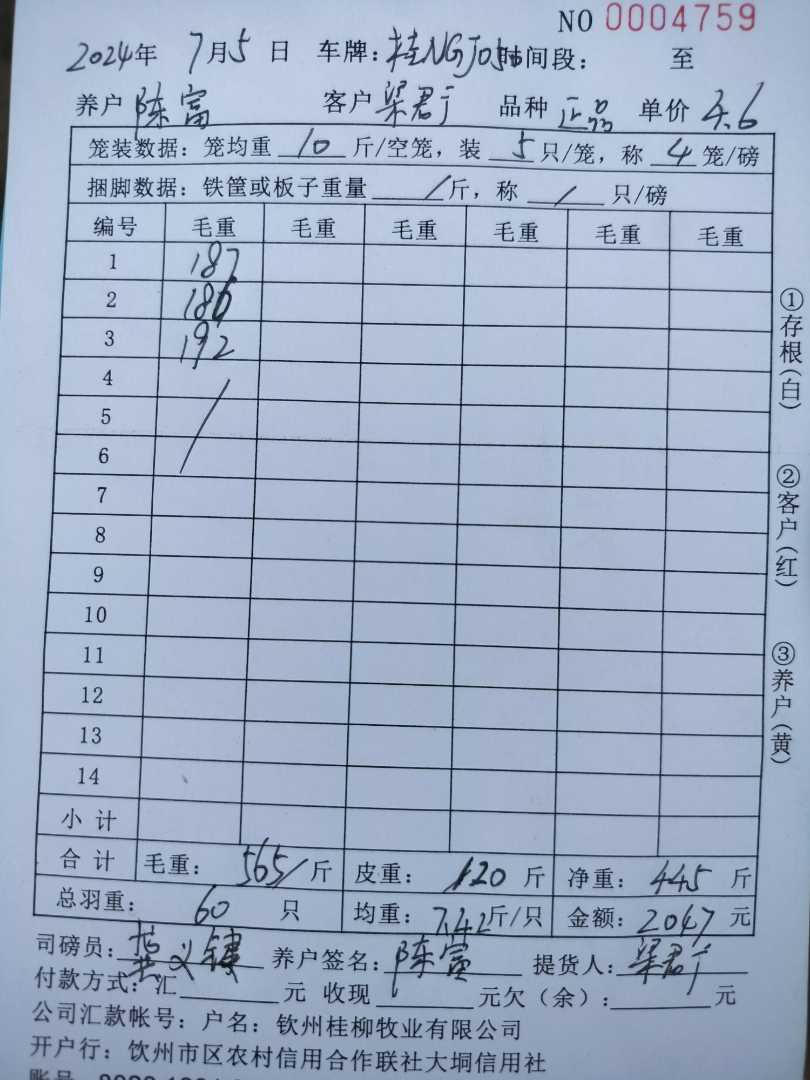 NO 0004759
2024年 7月5日 车牌:桂NGJ05 时间段: 至
养户 陈富 客户 梁君广 品种 正品 单价 4.6
笼装数据: 笼均重 10 斤/空笼, 装 5 只/笼, 称 4 笼/磅
捆脚数据: 铁筐或板子重量 / 斤, 称 / 只/磅
编号 毛重 毛重 毛重 毛重 毛重 毛重
1 187
2 186
3 192
4
5
6
7
8
9
10
11
12
13
14
小计
合计 毛重: 565 斤 皮重: 120 斤 净重: 445 斤
总羽重: 60 只 均重: 7.42斤/只 金额: 2047 元
司磅员: 义 养户签名: 陈富 提货人: 梁君广
付款方式: 汇 元 收现 元欠(余): 元
公司汇款帐号: 户名: 钦州桂柳牧业有限公司
开户行: 钦州市区农村信用合作联社大垌信用社
①存根(白)
②客户(红)
③养户(黄)